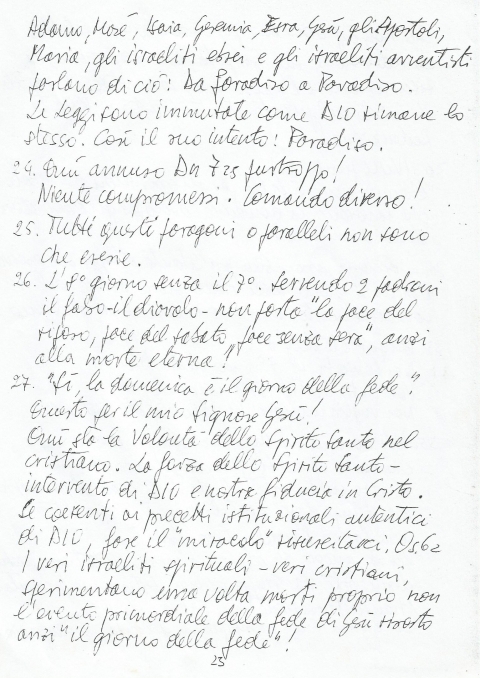 Adamo, Mosé, Isaia, Geremia Esra, Gesù, gli Apostoli,
Maria, gli israeliti ebrei e gli israeliti avventisti
parlano di ciò: Da Paradiso a Paradiso.
Le Leggi sono immutate come DIO rimane lo
stesso. Così il suo intento: Paradiso.
24. Qui annuso Dn 7 25 purtroppo!
Niente compromessi. Comando diverso!
25. Tutti questi paragoni o paralleli non sono
che eresie.
26. L'8° giorno senza il 7°. Servendo 2 padroni
il falso-il diavolo-non porta "la pace del
riposo, pace del sabato, pace senza sera", anzi
alla morte eterna!
27. "Sì, la domenica è il giorno della fede".
Questo per il mio Signore Gesù!
Qui stà la Volontà dello Spirito Santo nel
cristiano. La forza dello Spirito Santo-
intervento di DIO e nostra fiducia in Cristo.
Se coerenti ai precetti istituzionali autentici
di DIO, fare il "miracolo" risuscitarci, Os. 6 2
I veri israeliti spirituali - veri cristiani,
sperimentano una volta morti proprio non
l'evento primordiale della fede di Gesù risorto
anzi "il giorno della fede"!
23